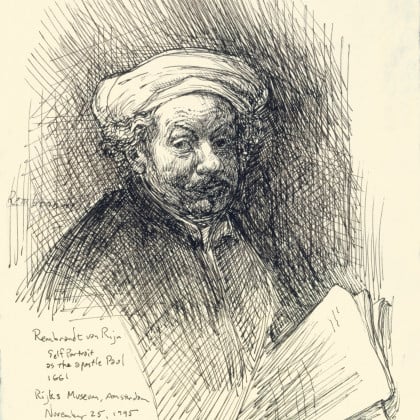 Rembrandt
Rembrandt van Rijn
Self Portrait
as the apostle Paul
1661
Rijks Museum, Amsterdam
November 25, 1995